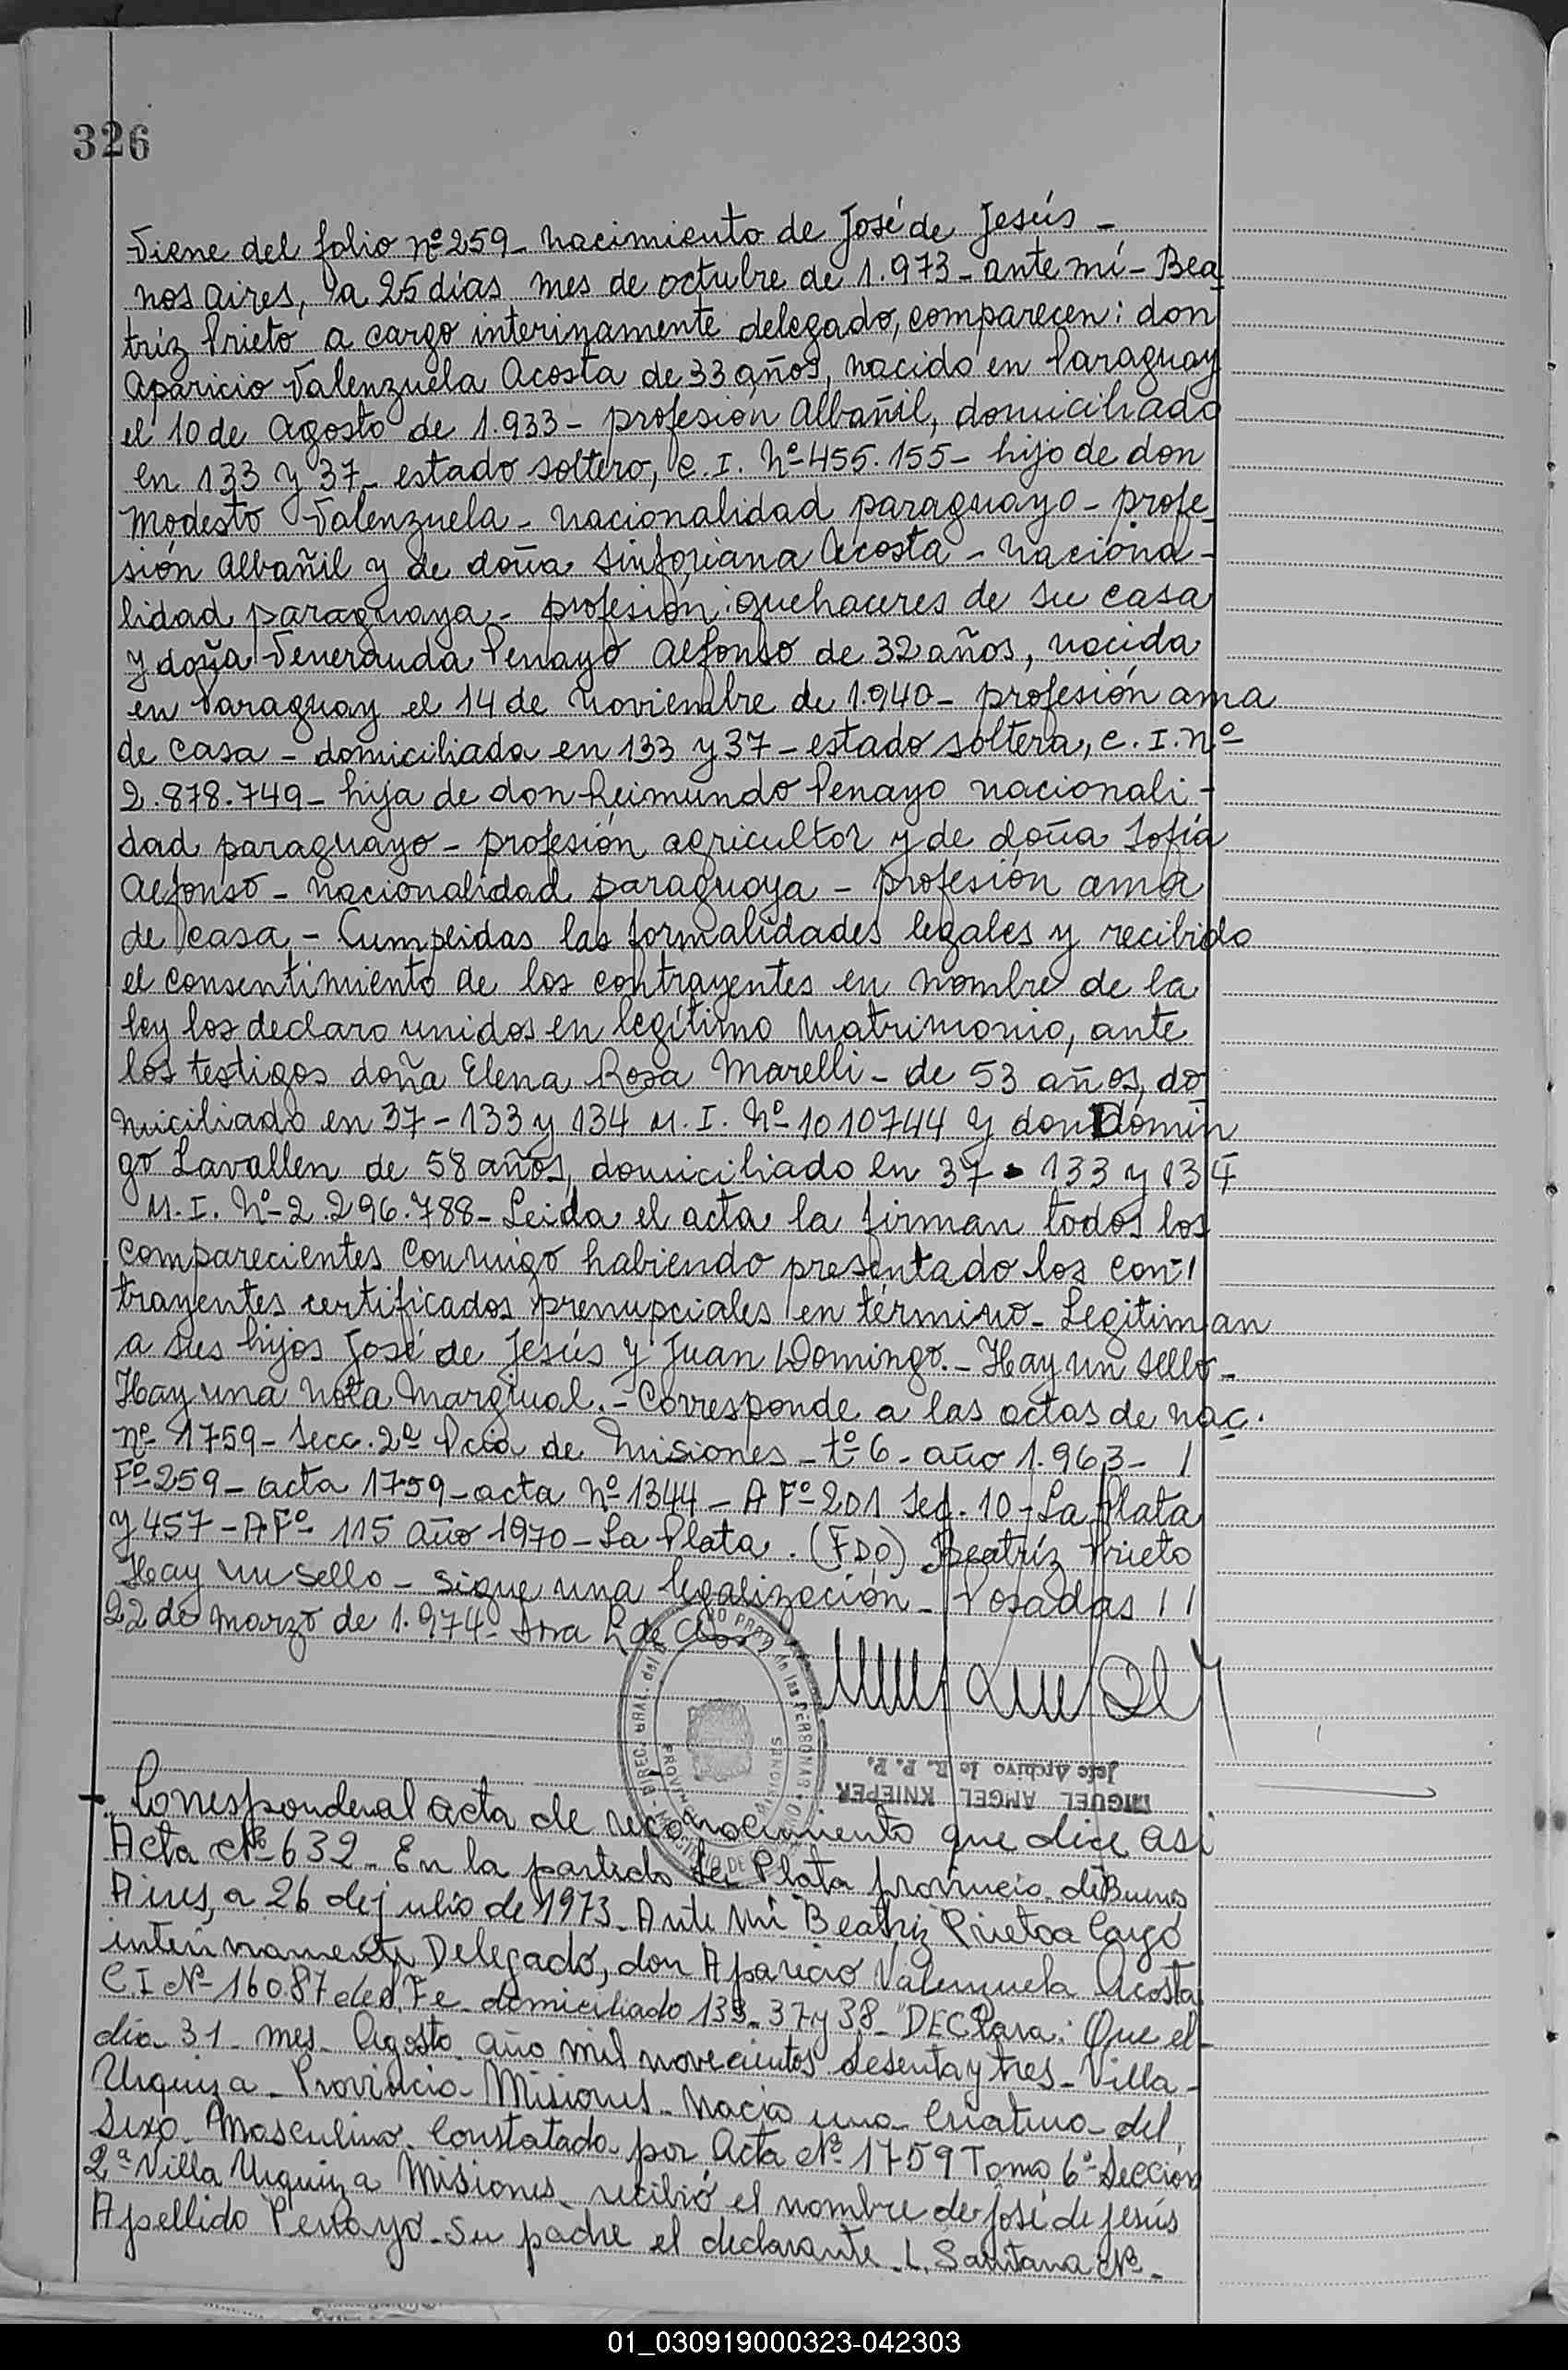 326
Viene del folio nº 259 - nacimiento de José de Jesús -
nos aires, a 25 días mes de octubre de 1.973 - ante mí - Bea
triz Prieto a cargo interinamente delegado, comparecen: don
Aparicio Valenzuela Acosta de 33 años, nacido en Paraguay
el 10 de Agosto de 1.933 - profesión Albañil, domiciliado
en 133 y 37 - estado soltero, C. I. Nº 455.155 - hijo de don
Modesto Valenzuela - nacionalidad paraguayo - profe
sión Albañil y de doña Sinforiana Acosta - naciona -
lidad paraguaya - profesión: quehaceres de su casa
y doña Veneranda Penayo Alfonso de 32 años, nacida
en Paraguay el 14 de noviembre de 1.940 - profesión ama
de casa - domiciliada en 133 y 37 - estado soltera, C. I. nº
2.878.749 - hija de don Reimundo Penayo nacionali -
dad paraguayo - profesión agricultor y de doña Sofía
Alfonso - nacionalidad paraguaya - profesión ama
de casa - Cumplidas las formalidades legales y recibido
el consentimiento de los contrayentes en nombre de la
ley los declaro unidos en legítimo matrimonio, ante
los testigos doña Elena Rosa Marelli - de 53 años, do
miciliado en 37 - 133 y 134 M. I. Nº 1010744 y don Domin
go Lavallen de 58 años, domiciliado en 37 - 133 y 134
M. I. Nº 2.296.788 - Leida el acta la firman todos los
comparecientes conmigo habiendo presentado los con -
trayentes certificados prenupciales en término - Legitiman
a sus hijos José de Jesús y Juan Domingo. - Hay un sello -
Hay una nota marginal. - Corresponde a las actas de nac.
nº 1759 - Secc. 2ª Pcia de Misiones - tº 6 - año 1.963 - /
Fº 259 - acta 1759 - acta Nº 1344 - A Fº 201 Sec. 10 - La Plata
y 457 - A Fº 115 año 1970 - La Plata. (FDO) Beatríz Prieto
Hay un sello - sigue una legalización - Posadas //
22 de marzo de 1.974 - Sra R de
MIGUEL ANGEL KNIEPER
Jefe Archivo R. P. P.
Corresponde al acta de reconocimiento que dice así
Acta Nº 632 - En la partido La Plata provincia de Buenos
Aires, a 26 de julio de 1973 - Ante mí Beatriz Prieto a Cargo
interinamente Delegado, don Aparicio Valenzuela Acosta
C.I Nº 16087 de Fe domiciliado 133 - 37 y 38 - DEClara: Que el
día 31 - mes - Agosto año mil novecientos sesenta y tres - Villa -
Urquiza - Provincia Misiones - nacio una criatura del
Sexo Masculino. Constatado por Acta Nº 1759 Tomo 6º Sección
2ª Villa Urquiza Misiones - recibió el nombre de José de Jesús
Apellido Penayo - Su padre el declarante L. Santana Nº -
01_030919000323-042303